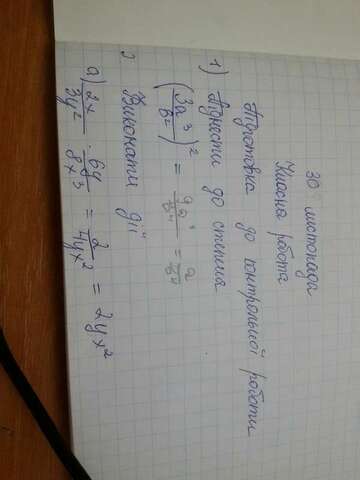 30 листопада
Класна робота
Підготовка до контрольної роботи
1) Піднести до степеня
(3a³/b²)² = 9a⁶/b⁴ = a/b⁴
2 Виконати дії
а) 2x/3y² · 6y/8x³ = 2/4yx² = 2yx²